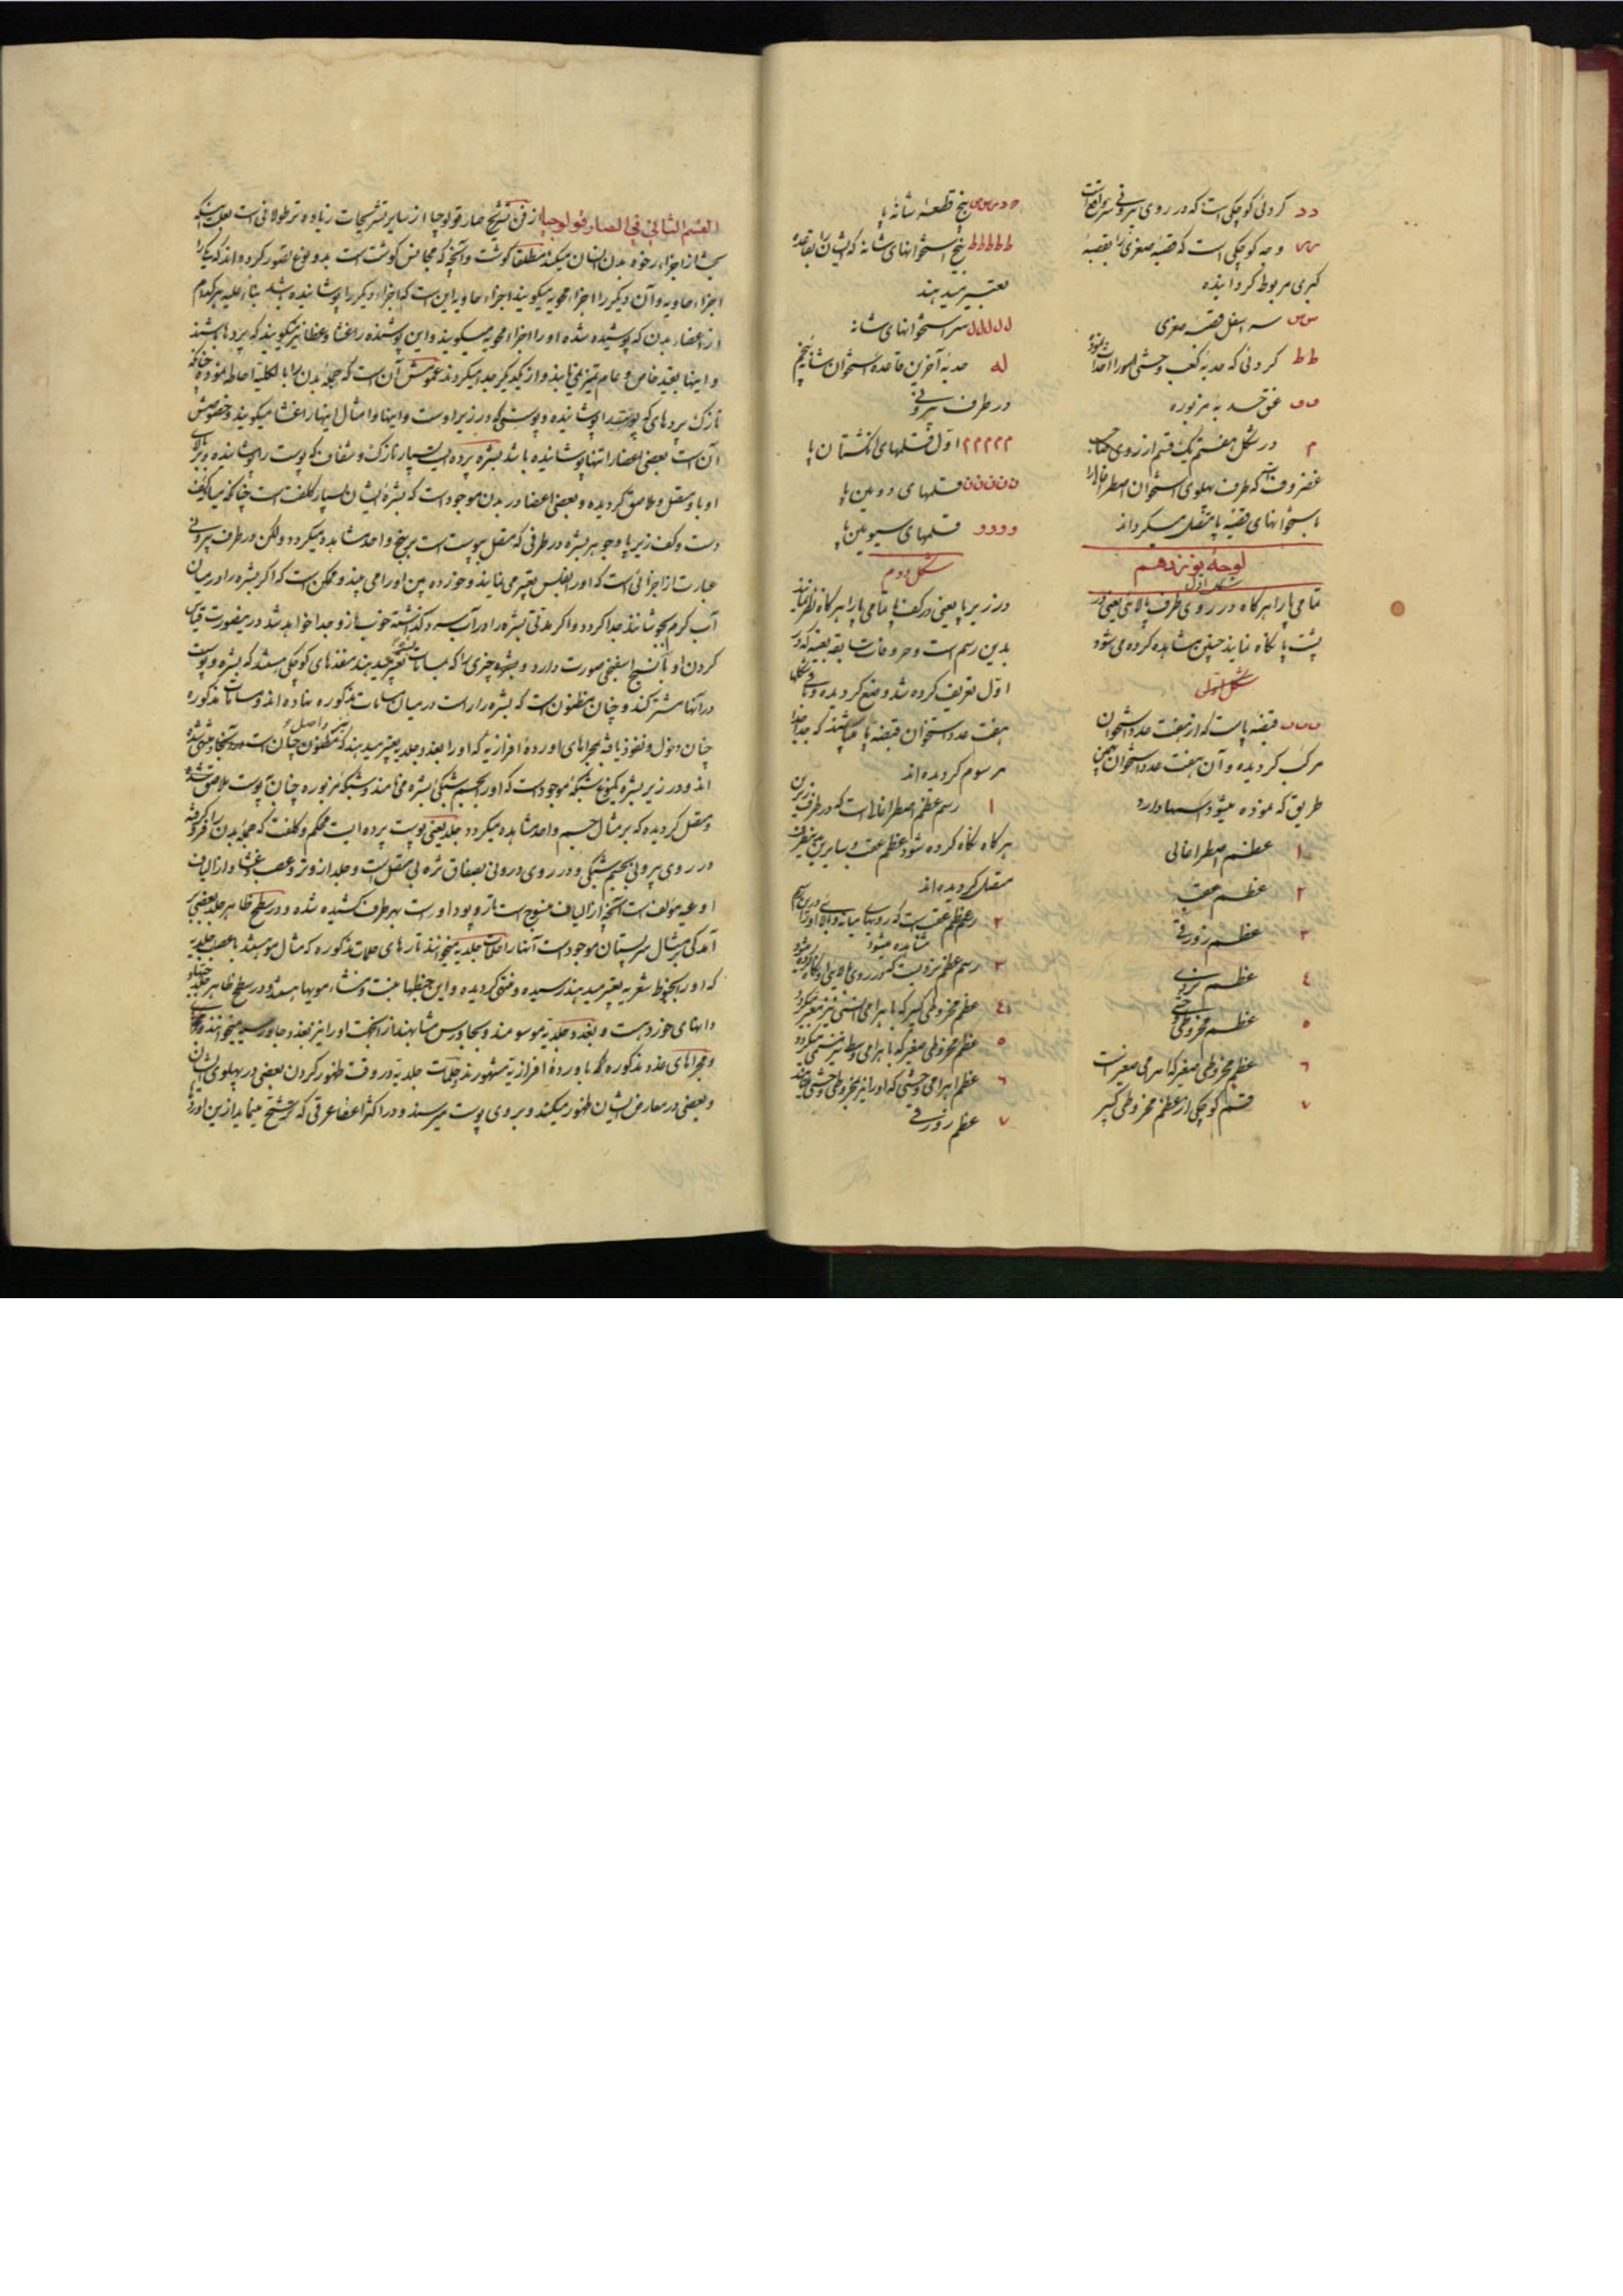 دد کردئی کوچکی است که در روی بیرونی سر واقع است
وجه کوچکی است که قصبهٔ صغری را بقصبهٔ
کبری مربوط گردانیده
س س سر اسفل قصبهٔ صغری
ط ط کردئی که حدبهٔ کعب وحشی
عنق حدبهٔ مزبوره
م در شکل هفتم یک قسم از روی
غضروف است که طرف پهلوی استخوان اصطراغالی را
باستخوانهای قبضهٔ پا متصل میگرداند
لوحهٔ پونزدهم
شکل اول
تمامی پا را هرگاه در روی طرف بالائی یعنی در
پشت پا نگاه نمایند چنین مشاهده کرده می شود
شکل اول
قبضهٔ پاست که از هفت عدد استخوان
مرکب گردیده و آن هفت عدد استخوان بهمین
طریق که نموده میشود اسمها دارد
۱ عظم اصطراغالی
۲ عظم عقب
۳ عظم زورقی
٤ عظم نردی
۵ عظم مخروطی وحشی
٦ عظم مخروطی صغیر که اهرامی صغیر است
۷ قسم کوچکی از عظم مخروطی کبیر
پنج قطعهٔ شانهٔ پا
ط ط ط ط ط پنج استخوانهای شانه که ایشان را بقاعده
تعبیر میدهند
ل ل ل ل ل سر استخوانهای شانه
له حدبهٔ آخرین قاعدهٔ استخوان شانهٔ پنجم
در طرف بیرونی
م م م م م اول قلمهای انگشتان پا
ن ن ن ن ن قلمهای دویمین پا
و و و و قلمهای سیومین پا
شکل دوم
در زیر پا یعنی در کف پا تمامی پا را هرگاه نظر نمایند
بدین رسم است و حروفات سابقه بعینه که در
اول تعریف کرده شد وضع گردیده و باقی شکلها
هفت عدد استخوان قبضهٔ پا میباشند که جدا جدا
مرسوم گردیده اند
۱ رسم عظم اصطراغالی است که در طرف زیرین
هرگاه نگاه کرده شود عظم عقب و سایرین بدینطرف
متصل گردیده اند
۲ رسم عظم عقب است که رویهای میانه و بالا او در این رسم
مشاهده میشود
۳ رسم عظم نردیست که در روی بالایی او نگاه کرده میشود
٤ عظم مخروطی کبیر که با هرامی انسی نیز تعبیر میگردد
۵ عظم مخروطی صغیر که با هرامی وسطا نیز مسمی میگردد
٦ عظم اهرامی وحشی که او را نیز مخروطی وحشی میخوانند
۷ عظم زورقی
القسم الثانی فی الصارقولوجیا از فن تشریح صارقولوجیا از سایر تشریحات زیاده تر طولانی است بعلت اینکه
بحث از اجزاء رخوه بدن انسان میکند مطلقا گوشت و آنچه که مجانس گوشت است بدو نوع تصور کرده اند که یکی را
اجزاء حاویه و آن دیگر را اجزاء محویه میگویند اجزاء حاویه این است که اجزاء دیگر را پوشانیده باشد بناء علیه هر کدام
از اعضاء بدن که پوشیده شده او را اجزاء محویه میگویند و این پوشنده را غشا و غطا نیز میگویند که پرده ها باشند
و اینها بقید خاص و عام تمیز می یابند و از یکدیگر جدا میگردند عمومش آن است که جمله بدن را بالکلیه احاطه نموده چنانکه
نازک پرده های که پوست را پوشانیده و پوستی که در زیر اوست و اینها و امثال اینها را غشا میگویند و خصوصش
آن است بعضی اعضا را تنها پوشانیده باشد بشره پرده ایست بسیار نازک و شفاف که پوست را پوشانیده و بر بالای
او با و متصل و ملاصق گردیده و بعضی اعضا در بدن موجود است که بشرهٔ ایشان بسیار کلفت است چنانکه میانه کف
دست و کف زیر پا و جوهر بشره در طرفی که متصل بپوست است بر نهج واحد مشاهده میگردد ولکن در طرف بیرونی
عبارت از اجزائی است که او را بفلس تعبیر می نمایند و خورده بین او را می بیند و ممکن است که اگر بشره را در میان
آب گرم بجوشانند جدا گردد و اگر مدتی بشره را در آب سرد گذاشته خوب باز و جدا خواهد شد در اینصورت قیاس
کردن او با نسج اسفنجی صورت دارد و بشره چیزی را که بمسامات تعبیر میدهند منفذهای کوچکی هستند که بشره و پوست
در آنها مشترکند و چنان مظنون است که بشره را راست در میان مسامات مذکوره نهاده اند و مسامات مذکوره
چنان دخول و نفوذ یافته بمجراهای اوردهٔ افرازیه که او را بغدد جلدیه تعبیر میدهند که مظنون چنان است
اند و در زیر بشره یکنوع شبکهٔ موجود است که او را بجسم شبکی بشره می نامند و شبکهٔ مزبوره چنان بپوست ملاصق شده
و متصل گردیده که بر مثال جسم واحد مشاهده میگردد جلد یعنی پوست پرده ایست محکم و کلفت که جمله بدن را فرو گرفته
در روی بیرونی بجسم شبکی و در روی درونی بصفاق متصل است و جلد از وتر و عصب و غشا و از الیاف
اوعیه مؤلف است آنچه از الیاف منسوج است تار و پود او راست بهر طرف کشیده شده و در سطح ظاهر جلد بعضی بر
آمدگی بر مثال سر پستان موجود است آنها را حلمات جلدیه میخوانند تارهای حلمات مذکوره که مثال مو هستند با عصب جلدیه
که او را بخیوط شعریه تعبیر میدهند رسیده و منتهی گردیده و این خیطها منبت و منشاء مویها هستند و در سطح ظاهر جلد
دانهای خورد هست و بغدد جلدیه موسومند و بجاورس مشابهند از اینجهت او را نیز بغدد جاورسیه میخوانند
و مجراهای غدد مذکوره که با وردهٔ افرازیه مشهورند حلمات جلدیه در وقت ظهور کردن بعضی در پهلوی ایشان
و بعضی در معارض ایشان ظهور میکنند و بر روی پوست میرسند و در اکثر اعضا عرقی که ترشح مینماید از این اوردها